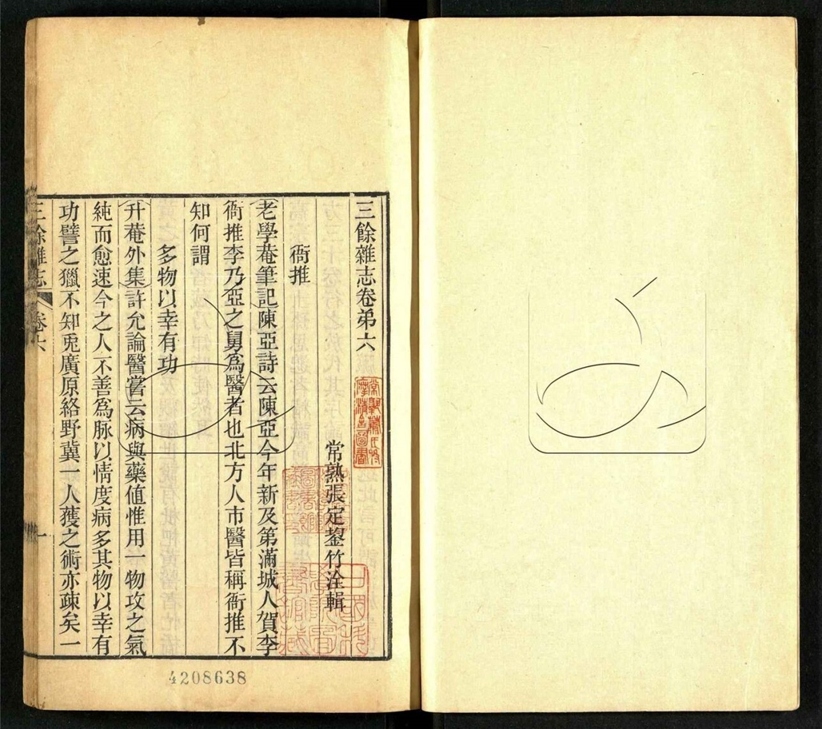 三餘雜志卷弟六
常熟張定鋆竹洤輯
衙推
老學菴筆記陳亞詩云陳亞今年新及第滿城人賀李
衙推李乃亞之舅爲醫者也北方人市醫皆稱衙推不
知何謂
多物以幸有功
升菴外集許允論醫嘗云病與藥值惟用一物攻之氣
純而愈速今之人不善爲脉以情度病多其物以幸有
功譬之獵不知兎廣原絡野冀一人獲之術亦疎矣一
三餘雜志 卷六 一
4208638